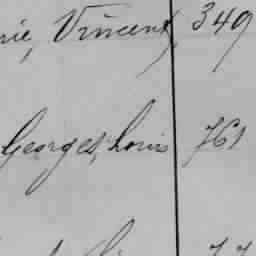 rie, Vincent, 349
Georges, Louis 761